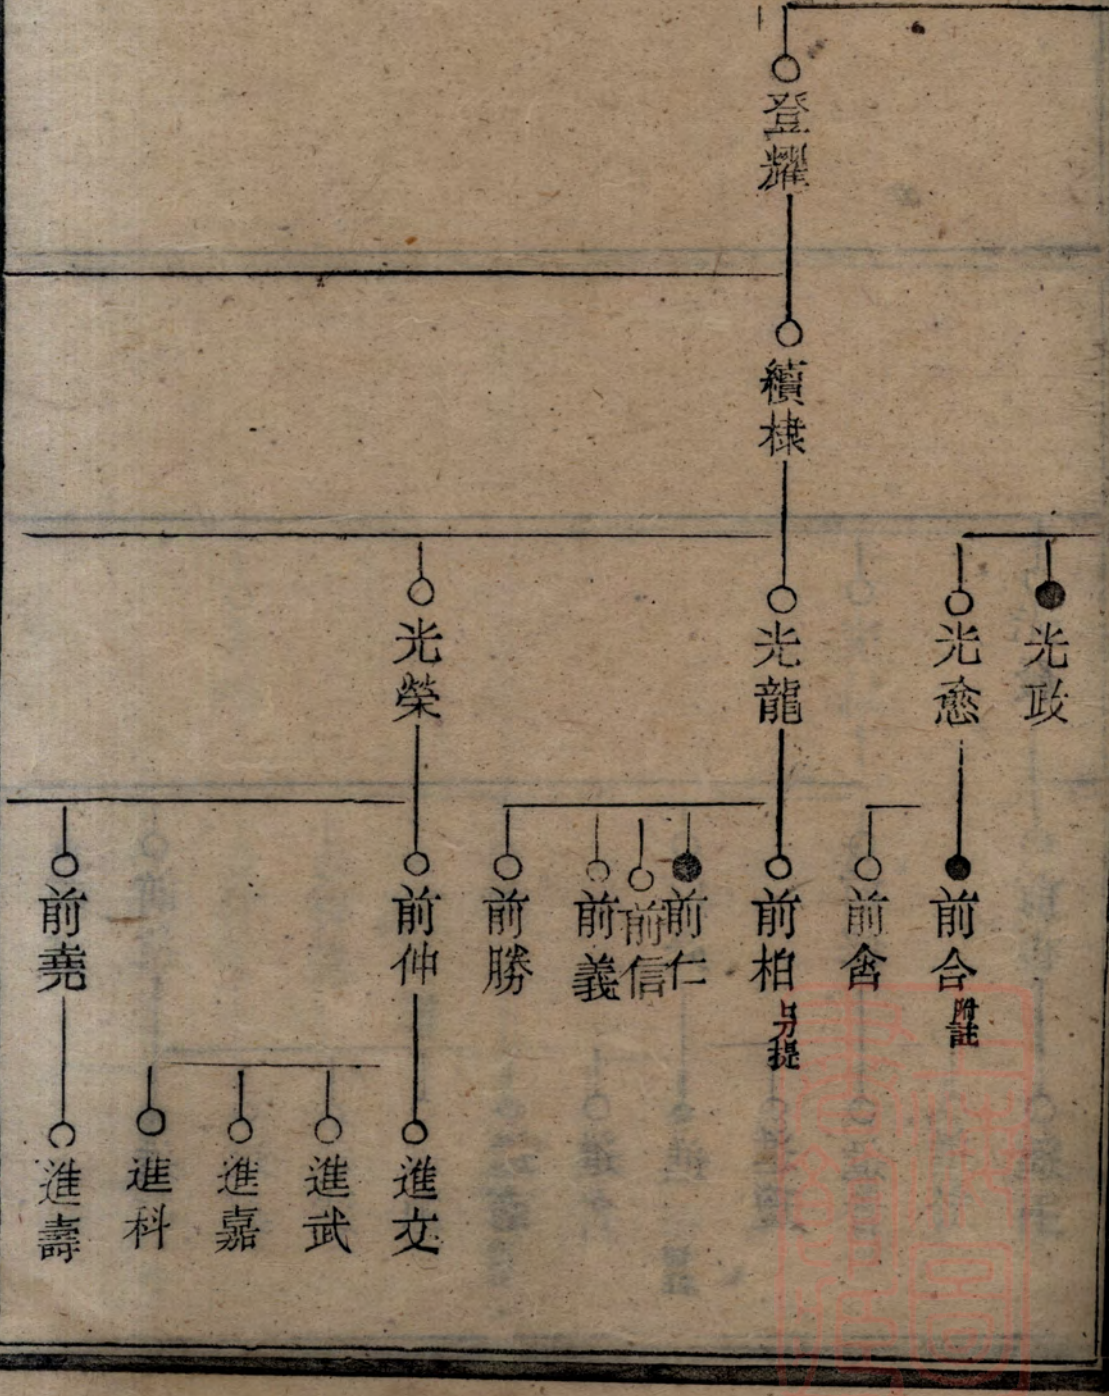 登耀
續棣
光政
光愈
光龍
光榮
前合
附註
前含
前柏
另提
前仁
前信
前義
前勝
前仲
前堯
進文
進武
進嘉
進科
進壽